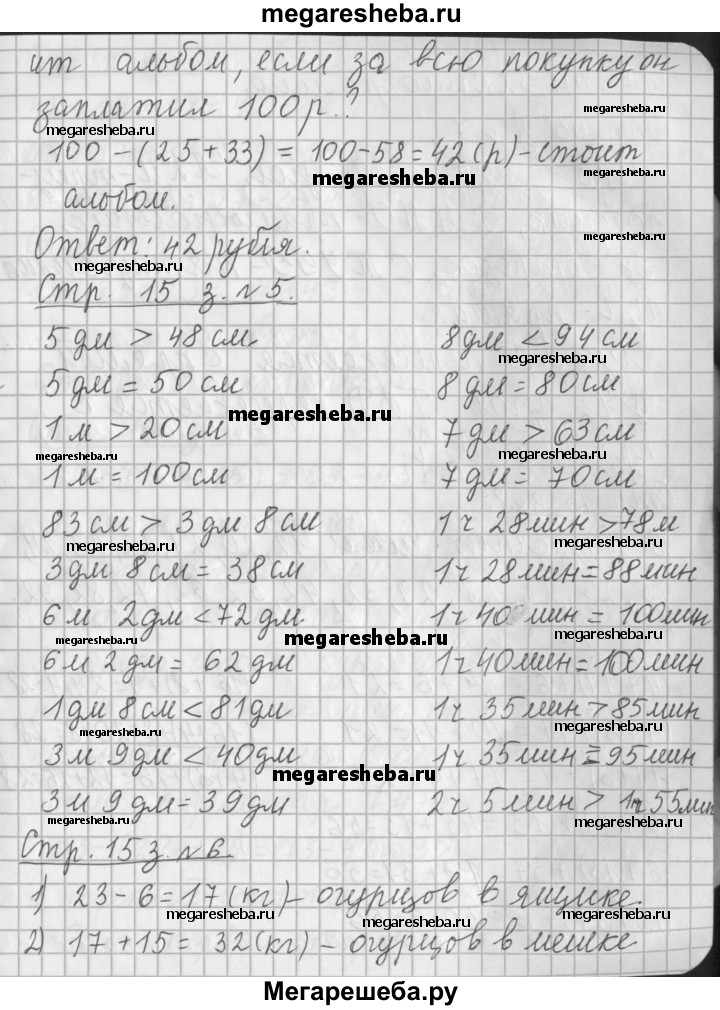 megaresheba.ru
ит альбом, если за всю покупку он
заплатил 100 р.?
megaresheba.ru
100 - (25 + 33) = 100 - 58 = 42 (р) - стоит
megaresheba.ru
альбом.
Ответ: 42 рубля.
megaresheba.ru
megaresheba.ru
Стр. 15 з. №5.
5 дм > 48 см
8 дм < 94 см
megaresheba.ru
5 дм = 50 см
8 дм = 80 см
megaresheba.ru
1 м > 20 см
7 дм > 63 см
megaresheba.ru
megaresheba.ru
1 м = 100 см
7 дм = 70 см
83 см > 3 дм 8 см
1ч 28 мин > 78 м
megaresheba.ru
megaresheba.ru
3 дм 8 см = 38 см
1ч 28 мин = 88 мин
6 м 2 дм < 72 дм
1ч 40 мин = 100 мин
megaresheba.ru
megaresheba.ru
megaresheba.ru
6 м 2 дм = 62 дм
1ч 40 мин = 100 мин
1 дм 8 см < 81 дм
1ч 35 мин > 85 мин
megaresheba.ru
megaresheba.ru
3 м 9 дм < 40 дм
1ч 35 мин = 95 мин
megaresheba.ru
3 м 9 дм = 39 дм
2ч 5 мин > 1ч 55 мин
megaresheba.ru
megaresheba.ru
Стр. 15 з. №6.
1) 23 - 6 = 17 (кг) - огурцов в ящике.
megaresheba.ru
megaresheba.ru
megaresheba.ru
2) 17 + 15 = 32 (кг) - огурцов в мешке
Мегарешеба.ру